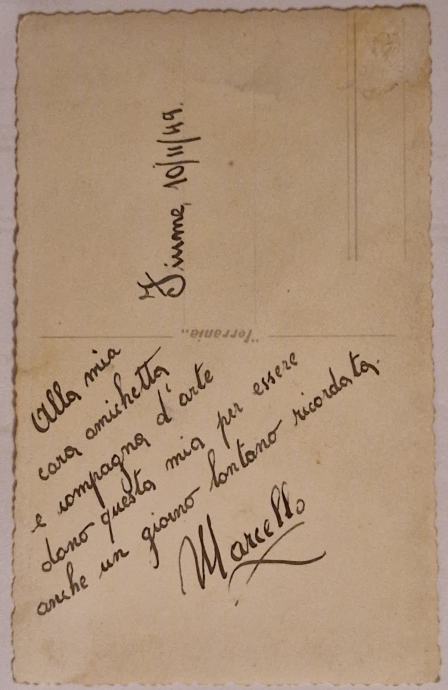 Fiume, 10/11/49.
"Ferrania"
Alla mia
cara amichetta
e compagna d'arte
dono questa mia per essere
anche un giorno lontano ricordata.
Marcello